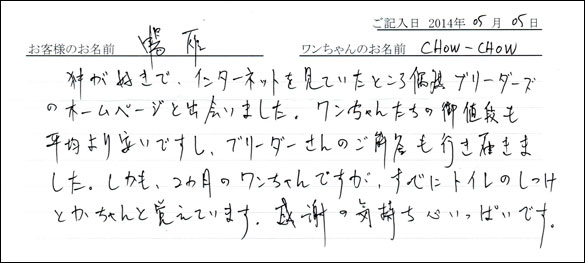 ご記入日 2014年 05 月 05 日
お客様のお名前 ワンちゃんのお名前 CHOW-CHOW
が好きで、インターネットを見ていたところ偶然ブリーダーズ
のホームページと出会いました。ワンちゃんたちの御値段も
平均より安いですし、ブリーダーさんのご解答も行き届きま
した。しかも、2ヵ月のワンちゃんですが、すでにトイレのしつけ
とかちゃんと覚えています。感謝の気持ち心いっぱいです。